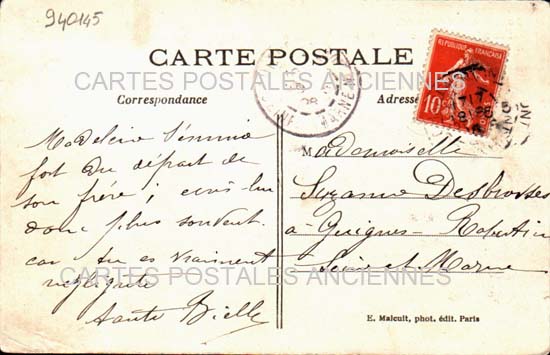 940145
CARTE POSTALE
CARTES POSTALES ANCIENNES
Correspondance
Adresse
REPUBLIQUE FRANÇAISE
10
Madeleine s'ennuie
fort du départ de
son frère ; écris-lui
donc plus souvent
car tu es vraiment
négligente
Tante Bielle
Mademoiselle
Suzanne Desbrosses
à Guignes-Rabutin
Seine et Marne
CARTES POSTALES ANCIENNES
E. Malcuit, phot. édit. Paris